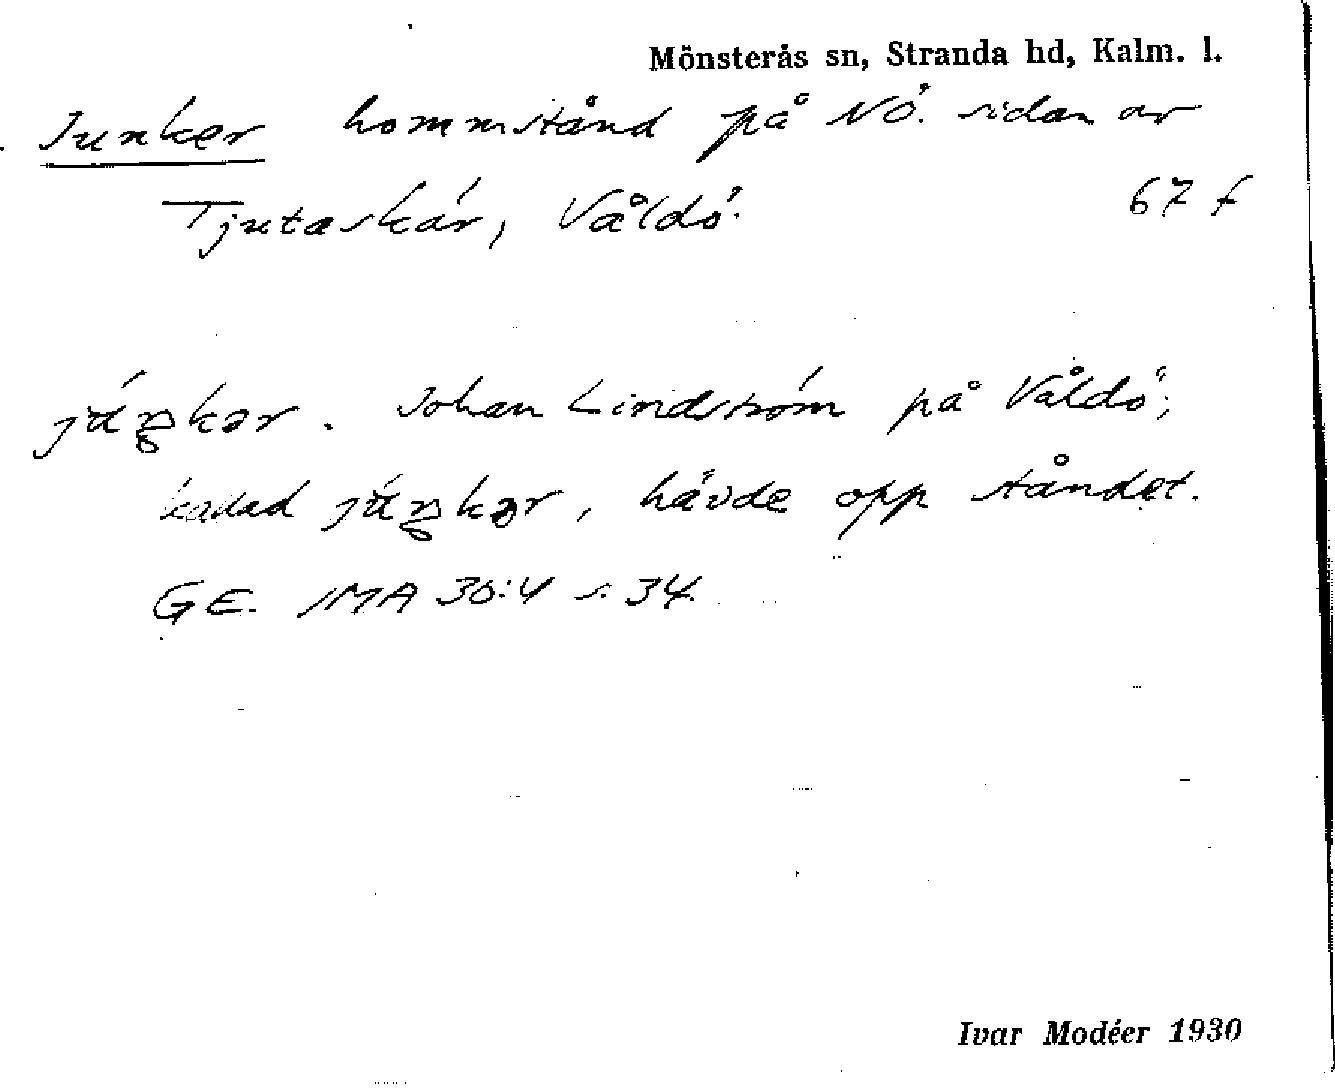 Mönsterås sn, Stranda hd, Kalm. l.
Junker hommstånd på NÖ. sidan av
Tjutaskär, Våldö. 67 f
Johan Lindström på Våldö;
kallad hävde opp ståndet.
GE. IMA 30:4 s. 34.
Ivar Modéer 1930